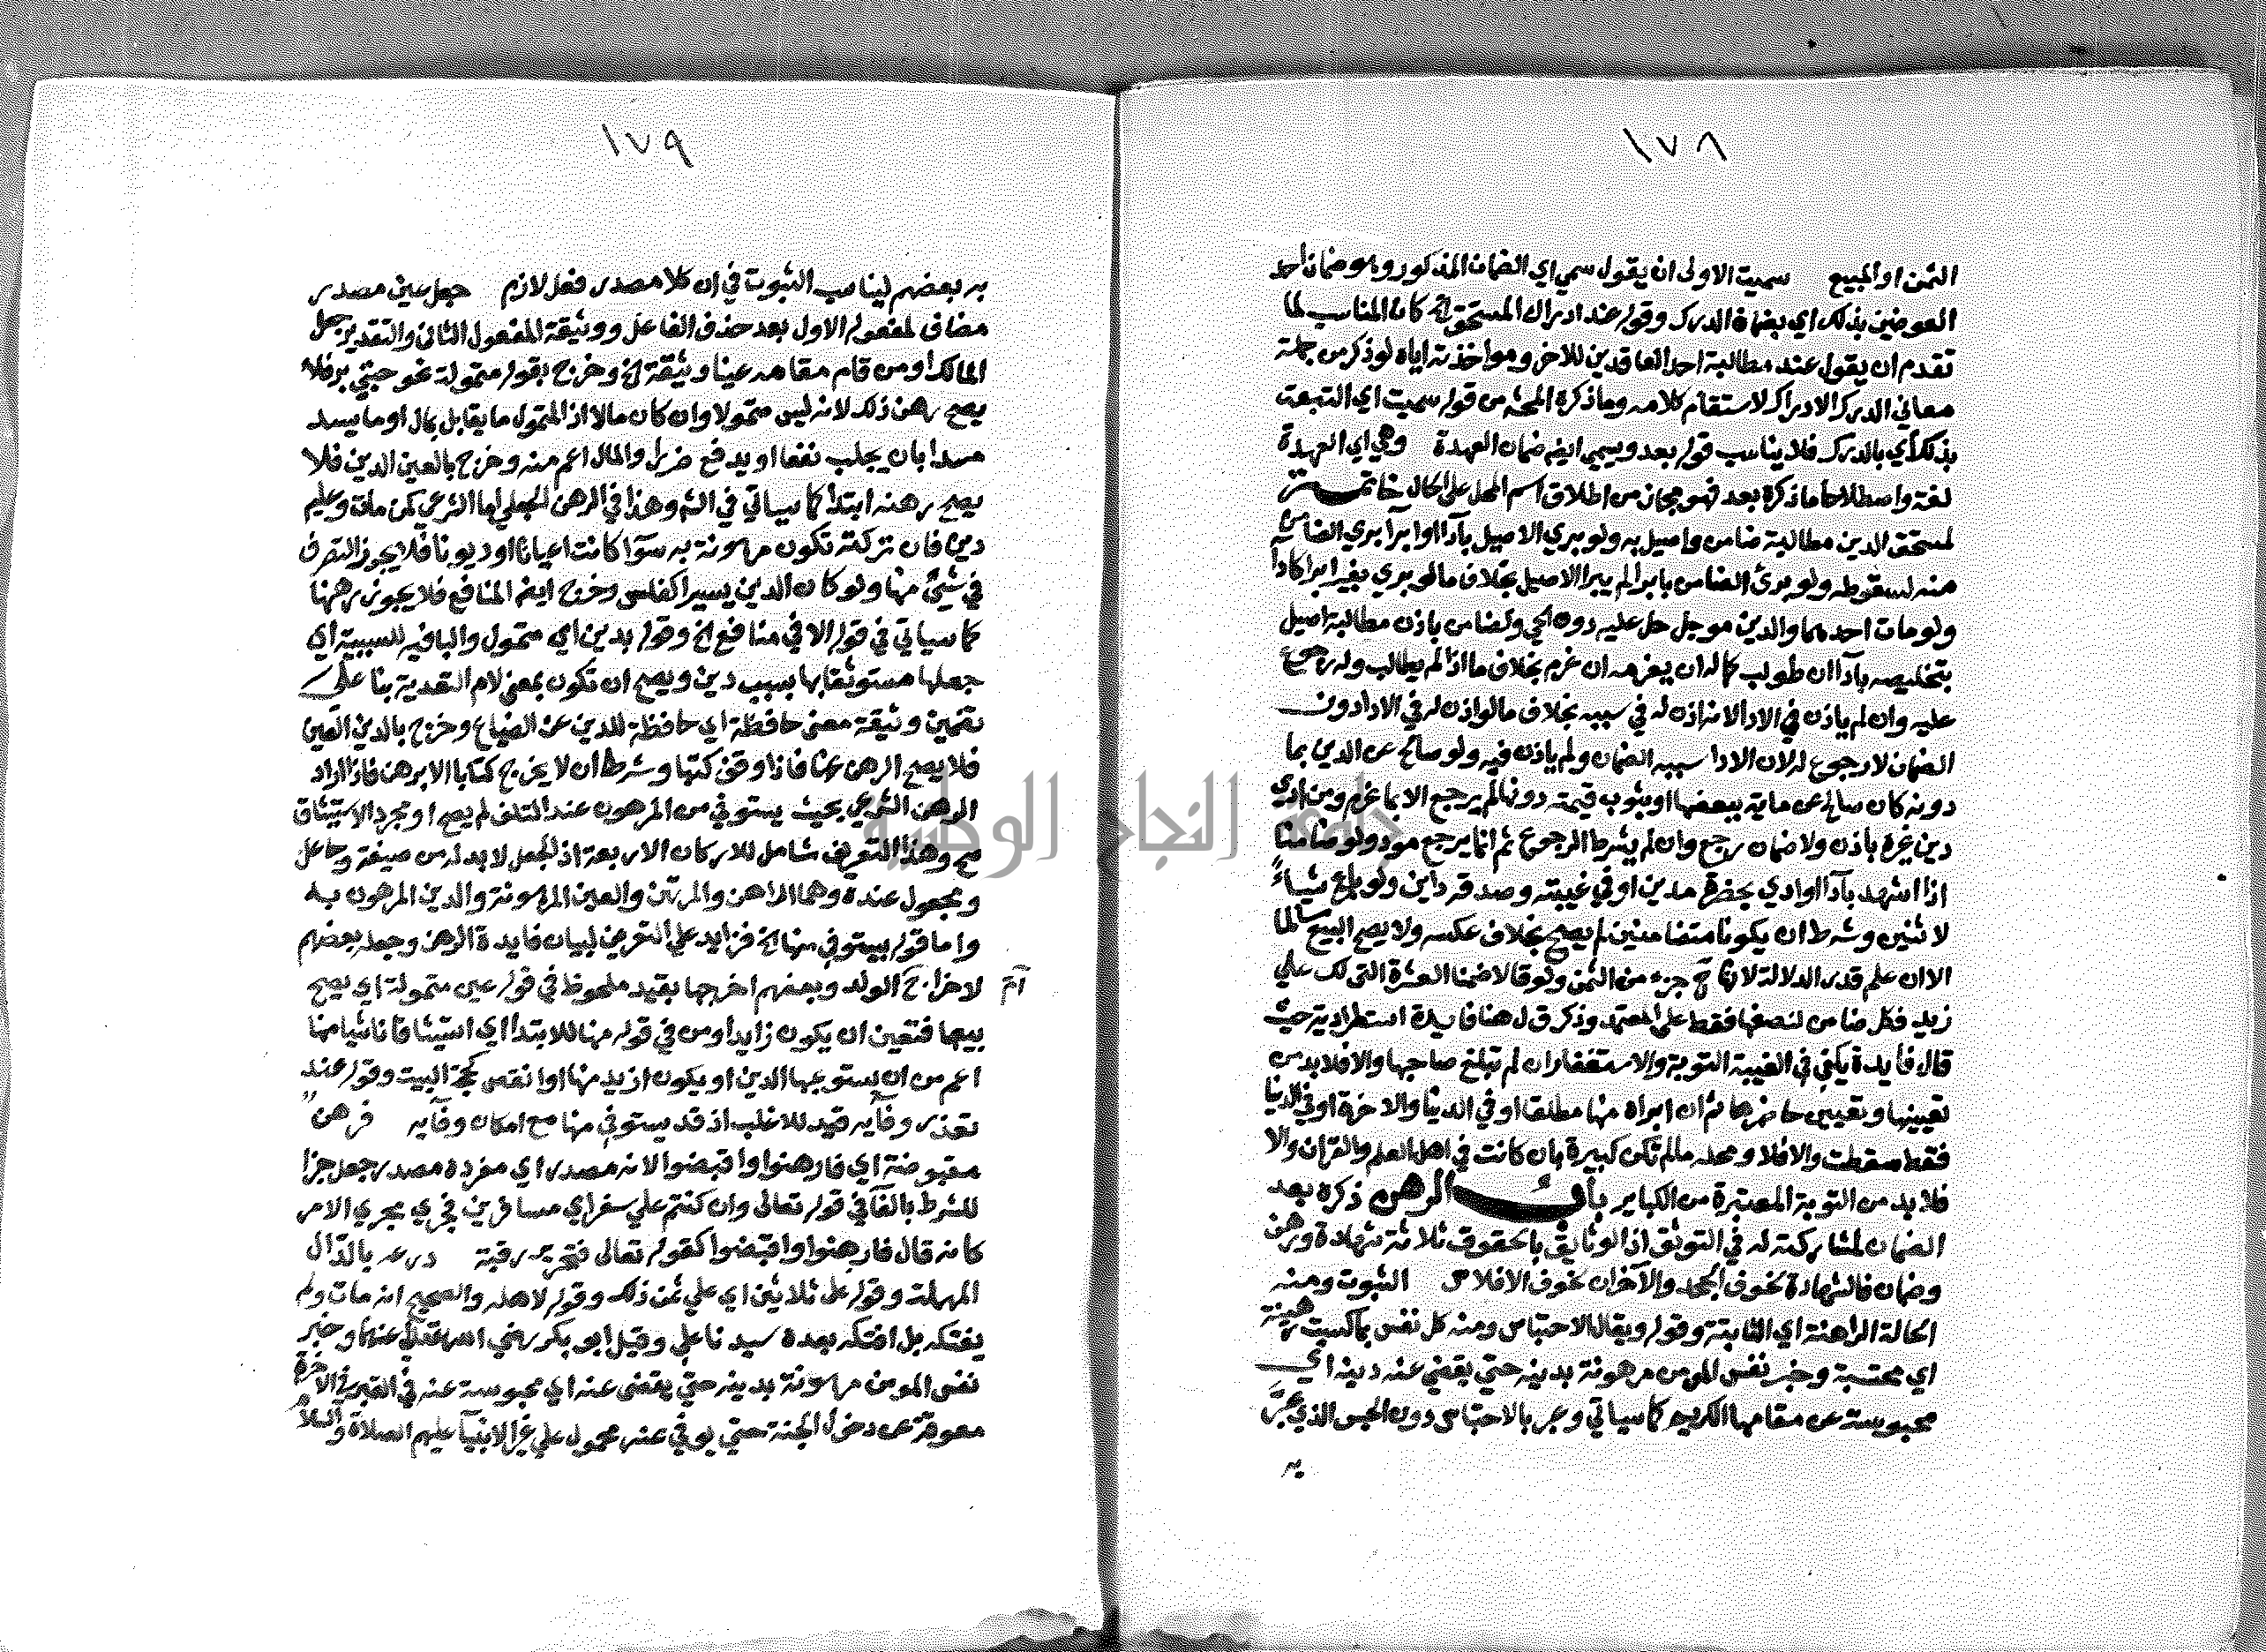 ١٧٨
الثمن او المبيع سميت الاولى ان يقول سمي اي الضمان المذكور وهو ضمان احد
العوضين بذلك اي بضمان الدرك وقوله عند ادراك المستحق الخ كان المناسب لما
تقدم ان يقول عند مطالبة احد العاقدين للاخر ومواخذته اياه لو ذكر من جملة
معاني الدرك الادراك لاستقام كلامه وما ذكره المحشي من قوله سميت اي التبعة
بذلك اي بالدرك فلا يناسب قوله بعد ويسمى ايضا ضمان العهدة وهي اي العهدة
لغة واصطلاحا ما ذكره بعد فهو مجاز من اطلاق اسم المحل على الحال خاتمة
لمستحق الدين مطالبة ضامن واصيل به ولو بري الاصيل بادا او ابرا بري الضامن
منه لسقوطه ولو برئ الضامن بابرا لم يبرا الاصيل بخلاف ما لو بري بغير ابرا كادا
ولو مات احدهما والدين موجل حل عليه دون الحي ولضامن باذن مطالبة اصيل
بتخليصه بادا ان طولب كما له ان يغرمه ان غرم بخلاف ما اذا لم يطالب وله رجوع
عليه وان لم ياذن في الادا لانه اذن له في سببه بخلاف ما لو اذن له في الادا دون
الضمان لا رجوع له لان الادا سببه الضمان ولم ياذن فيه ولو صالح عن الدين بما
دونه كان صالح عن ماية ببعضها او بثوب قيمته دونها لم يرجع الا بما غرم ومن ادى
دين غيره باذن ولا ضمان رجع وان لم يشرط الرجوع ثم انما يرجع مود ولو ضامنا
اذا اشهد بادا او ادي بحضرة مدين او في غيبته وصدقه داين ولو باع شياء
لاثنين وشرط ان يكونا متضامنين لم يصح بخلاف عكسه ولا يصح البيع سالما
الا ان علم قدر الدلالة لانها ح جزء من الثمن ولو قالا ضمنا العشرة التي لك علي
زيد فكل ضامن لنصفها فقط على المعتمد وذكر ق ل هنا فايدة استطرادية حيث
قال فايدة يكفي في الغيبة التوبة والاستغفار ان لم تبلغ صاحبها والا فلا بد من
تعيينها وتعيين حاضرها ثم ان ابراه منها مطلقا او في الدنيا والاخرة او في الدنيا
فقط سقطت والا فلا ومحله ما لم تكن كبيرة بان كانت في اهل العلم والقران والا
فلا بد من التوبة المعتبرة من الكباير باب الرهن ذكره بعد
الضمان لمشاركته له في التوثق اذ الوثايق بالحقوق ثلاثة شهادة ورهن
وضمان فالشهادة لخوف الجحد والاخران لخوف الافلاس الثبوت ومنه
الحالة الراهنة اي الثابتة وقوله ويقال الاحتباس ومنه كل نفس بما كسبت رهينة
اي محتبسة وخبر نفس المومن مرهونة بدينه حتي يقضي عنه دينه اي
محبوسة عن مقامها الكريم كما سياتي وعبر بالاحتباس دون الحبس الذي عبر
به
١٧٩
به بعضهم ليناسب الثبوت في ان كلا مصدر فعل لازم جعل عين مصدر
مضاف لمفعوله الاول بعد حذف الفاعل ووثيقة المفعول الثاني والتقدير جعل
المالك او من قام مقامه عينا وثيقة الخ وخرج بقوله متمولة نحو حبتي بر فلا
يصح رهن ذلك لانه ليس متمولا وان كان مالا اذ المتمول ما يقابل بمال او ما يسد
مسدا بان يجلب نفعا او يدفع ضررا والمال اعم منه وخرج بالعين الدين فلا
يصح رهنه ابتدا كما سياتي في الشم وهذا في الرهن الجعلي اما الشرعي كمن مات وعليه
دين فان تركته تكون مرهونة به سوا كانت اعيانا او ديونا فلا يجوز التصرف
في شيئ منها ولو كان الدين يسيرا كفلس وخرج ايضا المنافع فلا يجوز رهنها
كما سياتي في قوله الا في منافع الخ وقوله بدين اي متمول والبا فيه للسببية اي
جعلها مستوثقا بها بسبب دين ويصح ان تكون بمعني لام التعدية بنا على
تضمين وثيقة معنى حافظة اي حافظة للدين عن الضياع وخرج بالدين العين
فلا يصح الرهن عنها فاذا وقف كتبا وشرط ان لا يخرج كتابا الا برهن فاذا اراد
الرهن الشرعي بحيث يستوفي من المرهون عند التلف لم يصح او مجرد الاستيثاق
صح وهذا التعريف شامل للاركان الاربعة اذ الجعل لا بد له من صيغة وجاعل
ومجعول عنده وهما الراهن والمرتهن والعين المرهونة والدين المرهون به
واما قوله يستوفي منها الخ فزايد على التعريف لبيان فايدة الرهن وجعله بعضهم
لاخراج ام الولد وبعضهم اخرجها بقيد ملحوظ في قوله عين متمولة اي يصح
بيعها فتعين ان يكون زايدا ومن في قوله منها للابتدا اي استيثاقا ناشيا منها
اعم من ان يستوعبها الدين او يكون ازيد منها او انقص كحجة البيت وقوله عند
تعذر وفايه قيد للاغلب اذ قد يستوفي منها مع امكان وفايه فرهن
مقبوضة اي فارهنوا واقبضوا لانه مصدر اي مفرده مصدر جعل جزا
للشرط بالفا في قوله تعالى وان كنتم علي سفر اي مسافرين فجري مجري الامر
كانه قال فارهنوا واقبضوا كقوله تعالى فتحرير رقبة درعه بالدال
المهملة وقوله على ثلاثين اي علي ثمن ذلك وقوله لاهله والصحيح انه مات ولم
يفتكه بل افتكه بعده سيدنا علي وقيل ابو بكر رضي الله تعالى عنهما وخبر
نفس المومن مرهونة بدينه حتي يقضى عنه اي محبوسة عنه في القبر في الاخرة
معوقة عن دخول الجنة حتي يوفي عنه محمول علي غير الانبيا عليهم الصلاة والسلام
جامعة النجاح الوطنية